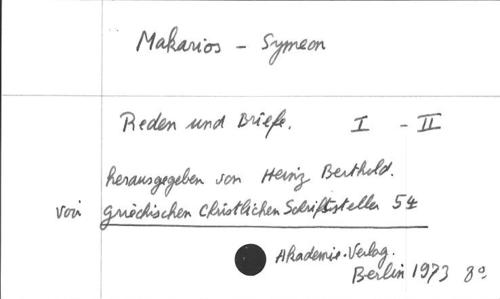 Makarios - Symeon
Reden und Briefe. I - II
herausgegeben von Heinz Berthold.
voir griechischen Christlichen Schriftsteller 54
Akademie-Verlag.
Berlin 1973 8º